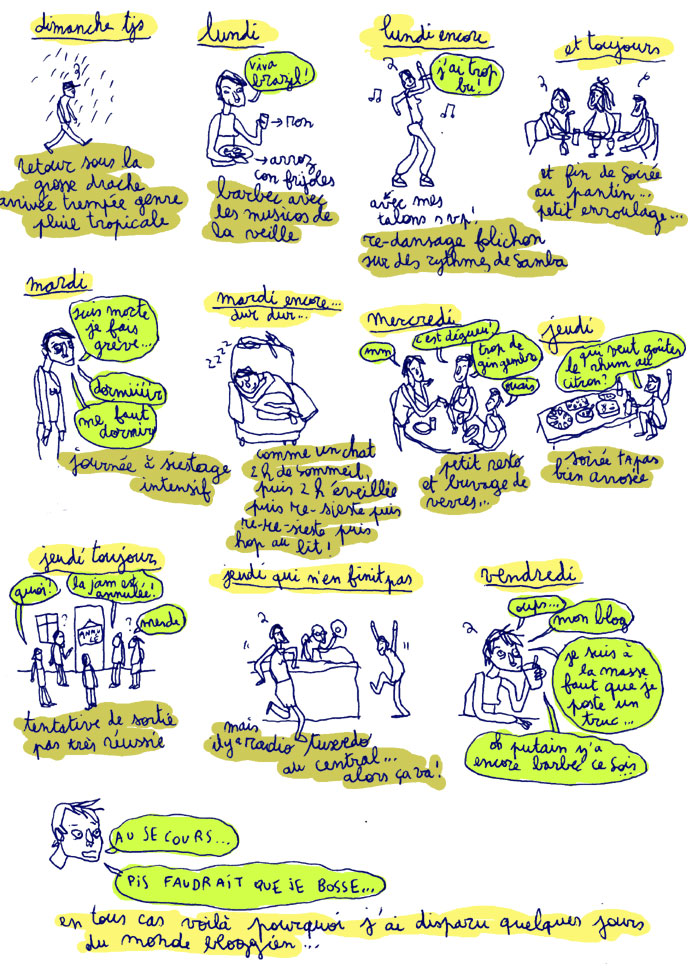 dimanche tjs
retour sous la
grosse drache
arrivée trempée genre
pluie tropicale
lundi
viva
brazil!
→ ron
→ arroz
con frijoles
barbec avec
les musicos de
la veille
lundi encore
j'ai trop
bu!
avec mes
talons svp!
re-dansage folichon
sur des rythmes de Samba
et toujours
et fin de soirée
au pantin...
petit enroulage...
mardi
suis morte
je fais
grève...
dormiiiir
me faut
dormir
journée à siestage
intensif
mardi encore...
dur dur...
zzzz
comme un chat
2h de sommeil,
puis 2h éveillée
puis re-sieste puis
re-re-sieste puis
hop au lit!
mercredi
mmm
c'est dégueu!
trop de
gingembre
ouais
petit resto
et buvage de
verres...
jeudi
qui veut goûter
le rhum au
citron?
soirée tapas
bien arrosée
jeudi toujours
quoi!
la jam est
annulée!
merde
ANNU
LÉ
tentative de sortie
pas très réussie
jeudi qui n'en finit pas
mais
il y a radio tuxedo
au central...
alors ça va!
vendredi
oups...
mon blog
je suis à
la masse
faut que je
poste un
truc...
oh putain y'a
encore barbec ce soir
AU SECOURS...
PIS FAUDRAIT QUE JE BOSSE...
en tous cas voilà pourquoi j'ai disparu quelques jours
du monde bloggien...